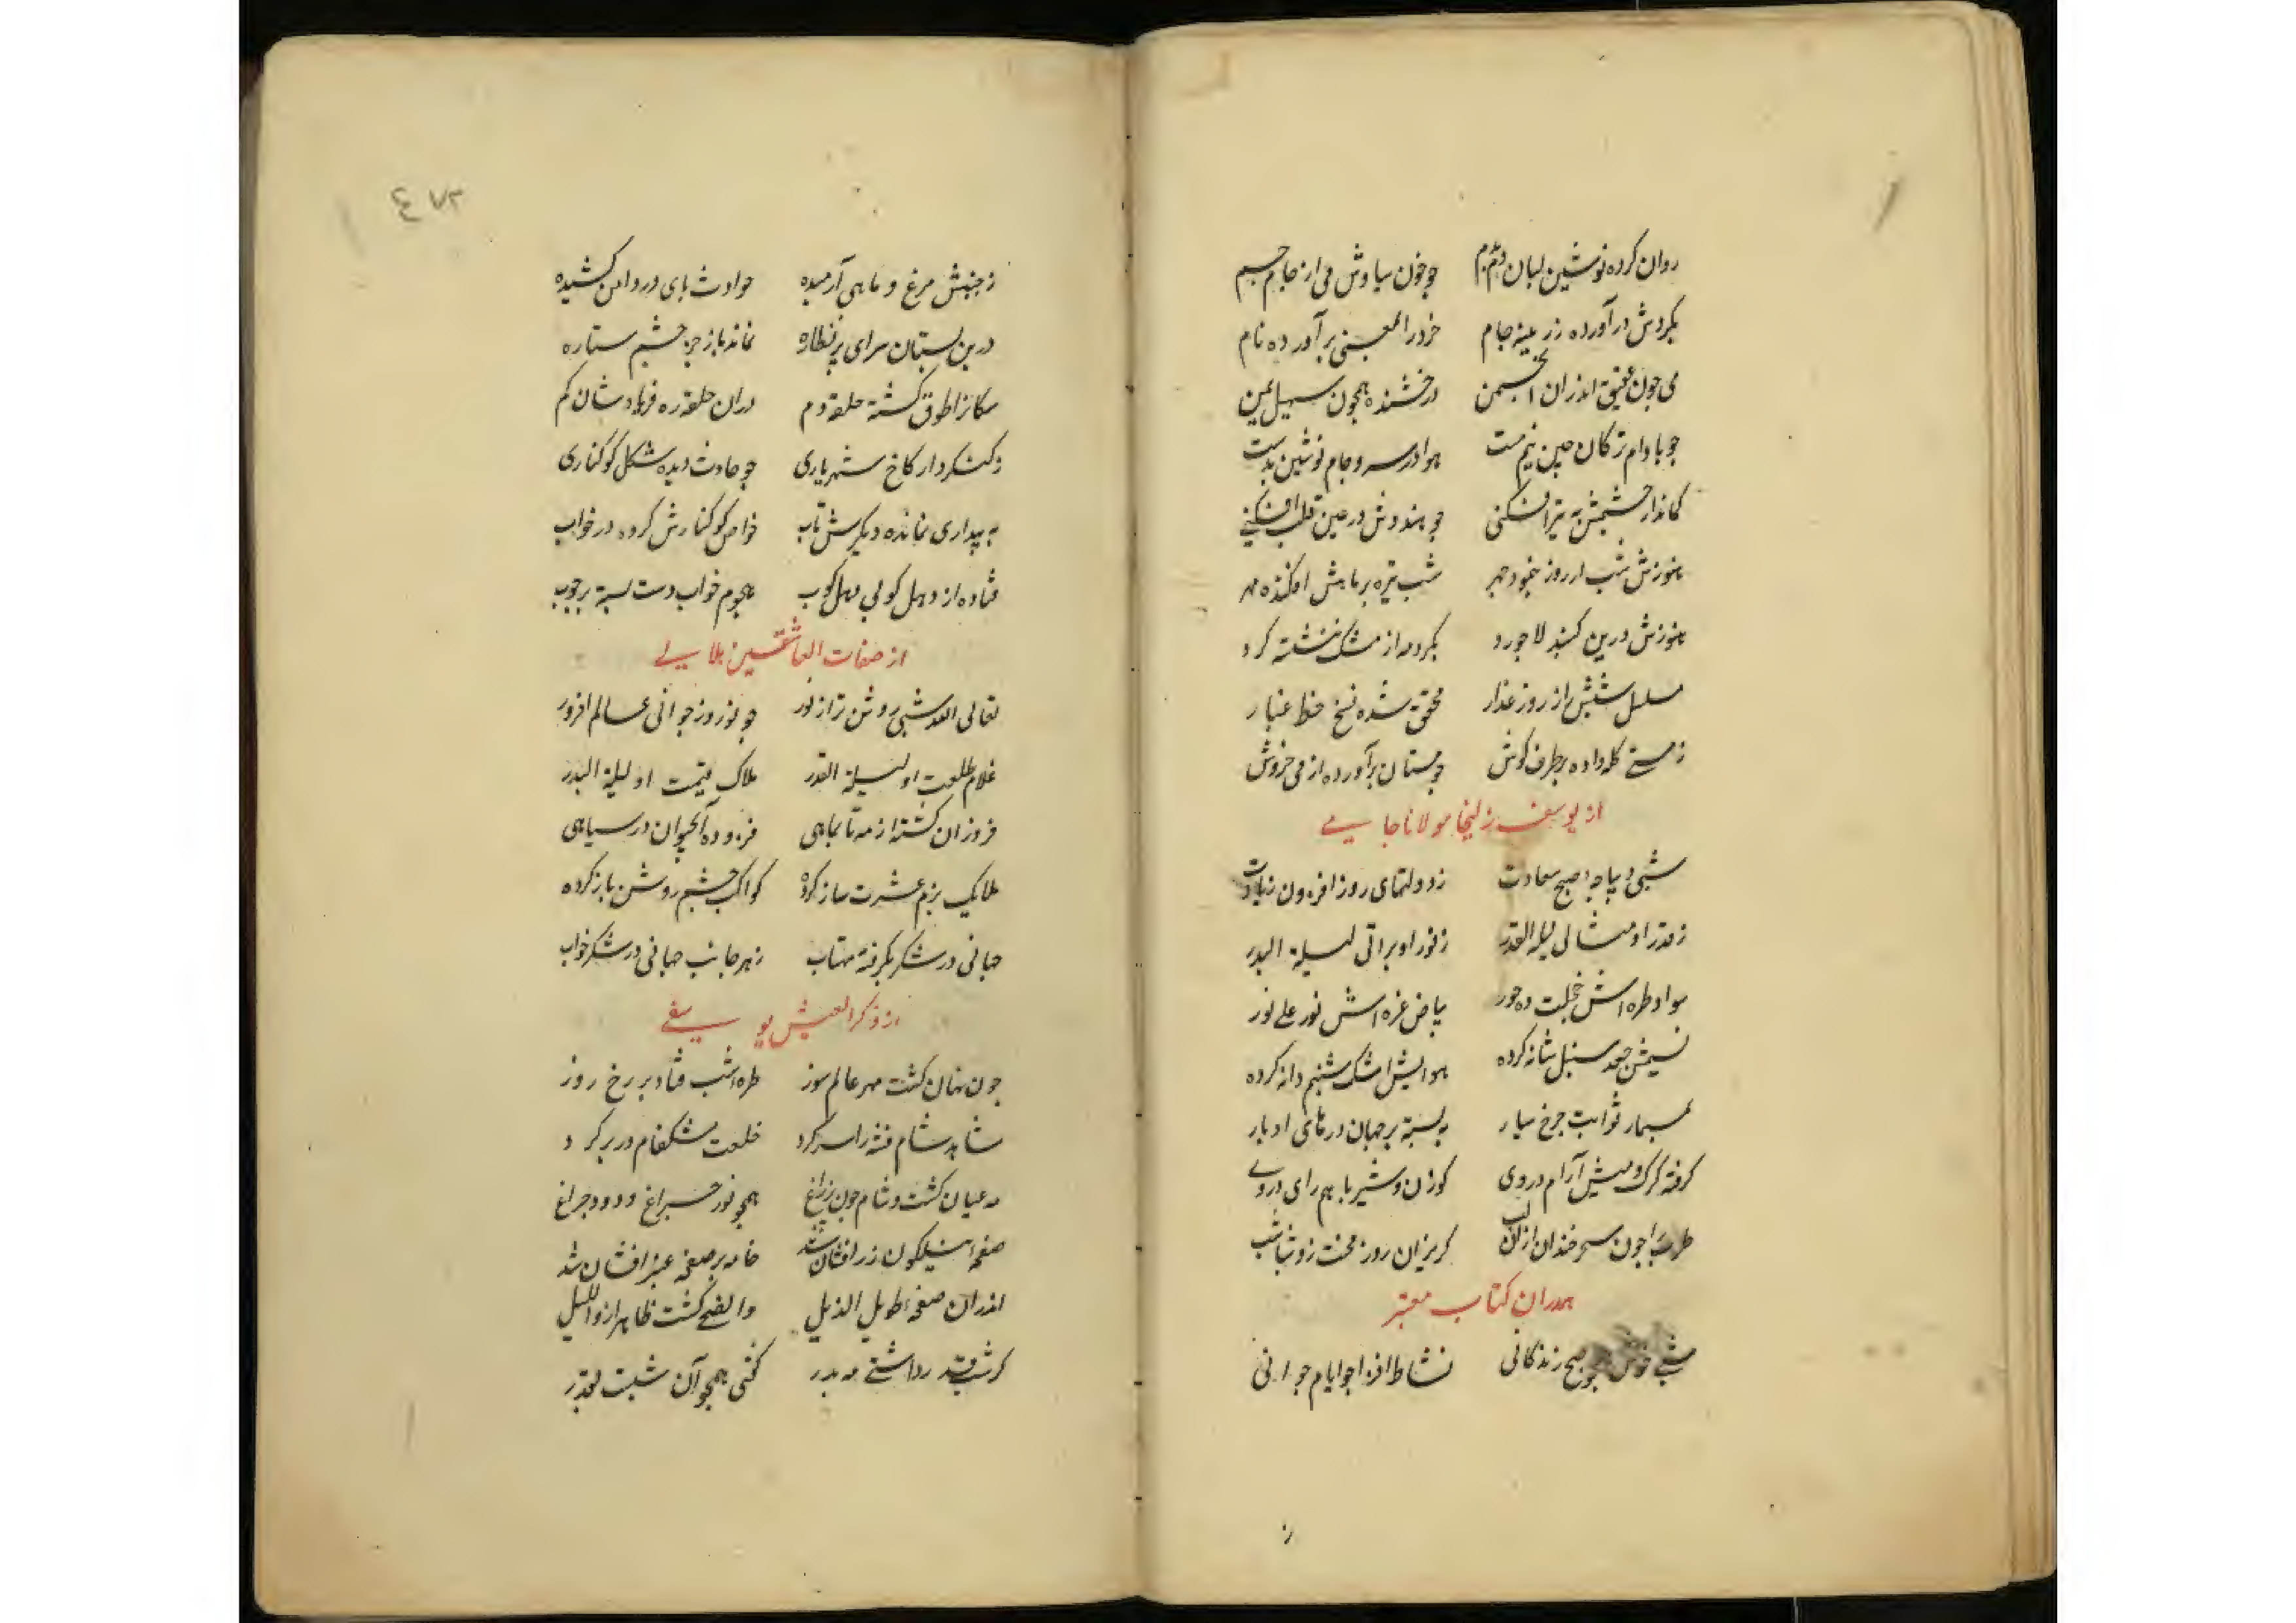 روان کرده نوشین لبان دم بدم چو خون سیاوش می از جام جم
بکردش درآورده زرینه جام خرد را لمعنی برآورده نام
می چون عقیق اندران انجمن درخشنده همچون سهیل یمن
چو بادام ترکان چین نیم مست هوا در سر و جام نوشین بدست
کماندار چشمش به تیر افکنی چو هندوش در عین قلب افکنی
هنوزش شب از روز ننمود چهر شب تیره بر ماهش افکنده مهر
هنوزش درین کنبد لاجورد بکرد مه از مشک ننشسته کرد
مسلسل شبش از روز عذار محقق شده نسخ خط غبار
ز مستی کله داده بر طرف کوش چو مستان برآورده از می خروش
از یوسف زلیخا مولانا جامی
شبی دیباچه صبح سعادت ز دولتهای روزافزون زیادت
ز قدر او مثالی لیلة القدر ز نور او براتی لیلة البدر
سواد طره اش خجلت ده حور بیاض غره اش نور علی نور
نسیمش جعد سنبل شانه کرده هوایش اشک شبنم دانه کرده
بمسمار ثوابت چرخ سیار به بسته بر جهان درهای ادبار
کرفته کرک و میش آرام در وی کوزن و شیر با هم رای در وی
طرب را چون سحر خندان ازان لب کریزان روز محنت زو شباشب
هم دران کتاب معتبر
شبی خوش همچو صبح زندکانی نشاط افزا چو ایام جوانی
ز
۴۷۲
ز جنبش مرغ و ماهی آرمیده حوادث پای در دامن کشیده
درین بستان سرای پر نظاره نماند باز جز چشم ستاره
سکانرا طوق کشته حلقه دم دران حلقه ره فریادشان کم
ز کنکردار کاخ شهریاری چو حادث دیده شکل کوکناری
به بیداری نمانده دیکرش تاب خواص کوکنارش کرده در خواب
فتاده از دهل کوبی دهل کوب هجوم خواب دست بسته بر چوب
از صفات العاشقین هلالی
تعالی الله شبی روشن تر از نور چو نوروز جوانی عالم افروز
غلام طلعت او لیلة القدر هلاک قیمت او لیلة البدر
فروزان کشته از مه تا بماهی فزوده آب حیوان در سیاهی
ملایک بزم عشرت ساز کرده کواکب چشم روشن باز کرده
جهانی در شکر بکرفته مهتاب ز هر جانب جهانی در شکر خواب
از ذکر العیش یوسفی
چون نهان کشت مهر عالم سوز طره شب فتاد بر رخ روز
شاهد شام فتنه را سر کرد خلعت مشکفام در بر کرد
مه عیان کشت و شام چون پر زاغ همچو نور چراغ و دود چراغ
صفحه نیلکون زرافشان شد خامه بر صفحه عنبرافشان شد
اندران صفحه طویل الذیل والضحی کشت ظاهر از واللیل
کر شب قدر داشتی مه بدر کفتی همچو آن شبست بقدر